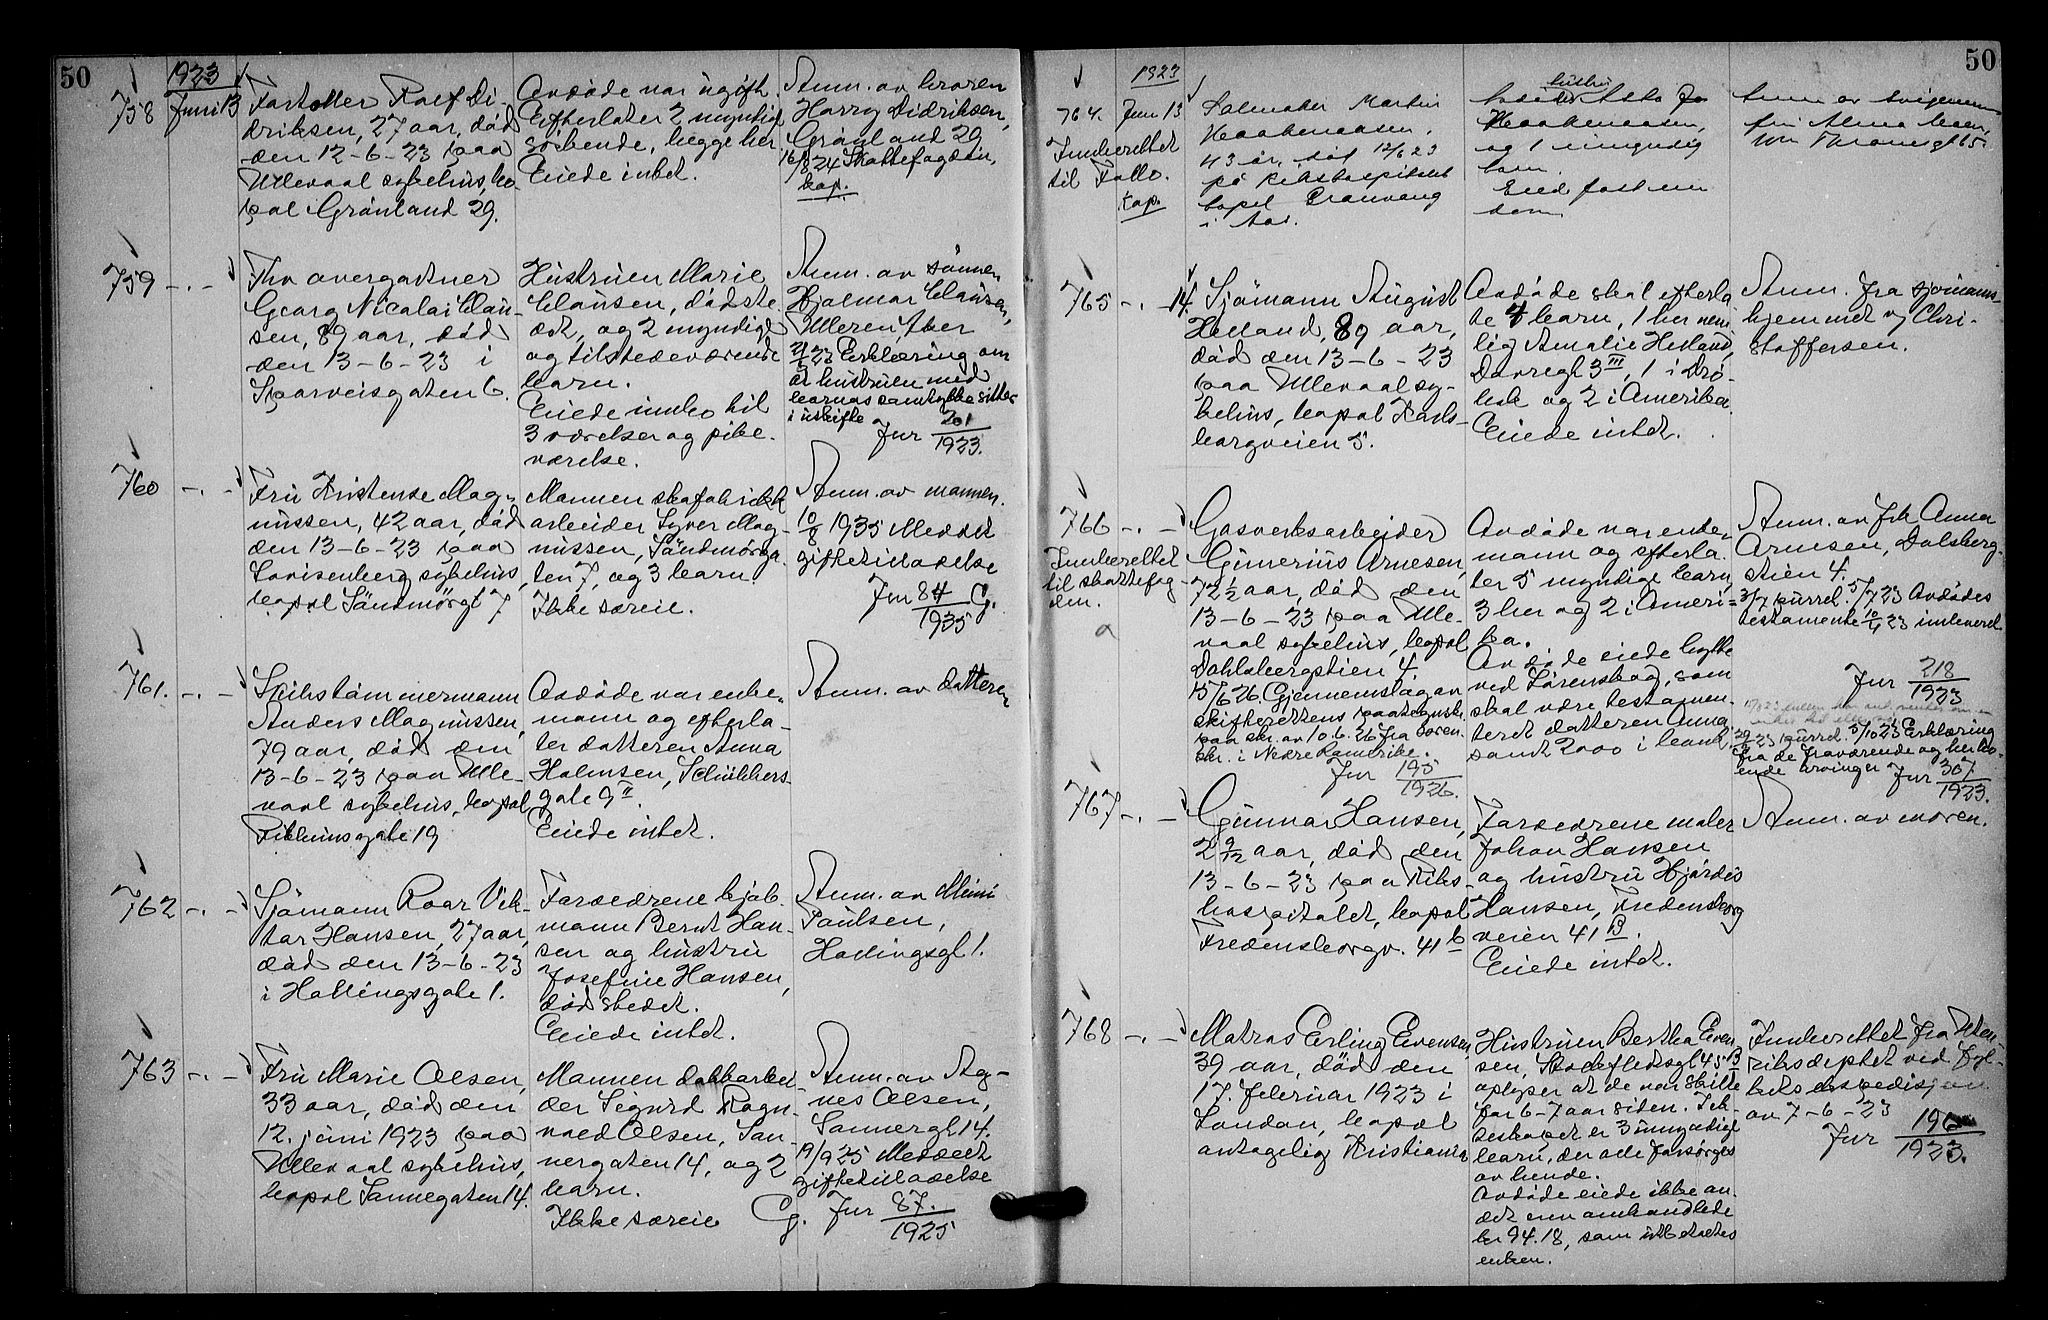 50
1923
758
Juni 13
Rolf Di-
driksen, 27 aar, död
den 12-6-23 paa
Ullevaal sykehus, bo-
pæl Grönland 29.
Avdöde var ugift.
Efterlater 2 myndige
söskende, begge her.
Eiede intet.
Anm. av broren
Harry Didriksen,
Grönland 29
16/8 24 Skattefogden,
kop.
759 -.-
Fhv overgartner
Georg Nicolai Clau-
sen, 89 aar, död
den 13-6-23 i
Sporveisgaten 6.
Hustruen Marie
Clausen, dödste-
det, og 2 myndige
og tilstedeværende
barn.
Eiede innbo til
3 værelser og pike-
værelse.
Anm. av sönnen
Hjalmar Clausen,
Ulleren, Aker
23 Erklæring om
at hustruen med
barnas samtykke sitter
i uskifte
Jnr 201
1923.
760 -.-
Fru Kristense Mag-
nussen, 42 aar, död
den 13-6-23 paa
Lovisenberg sykehus,
bopæl Söndmörgt 7
Mannen skofabrikk
arbeider Syver Mag-
nussen, Söndmörga-
ten 7, og 3 barn.
Ikke særeie.
Anm. av mannen.
10/8 1935 Meddelt
giftetilladelse
Jnr 84 G.
1935
761. -.-
Skibstömmermann
Anders Magnussen,
79 aar, död den
13-6-23 paa Ulle-
vaal sykehus, bopæl
19
Avdöde var enke-
mann og efterla-
ter datteren Anna
Holmsen,
gate 9 II.
Eiede intet.
Anm. av datteren
762 -.-
Sjömann Roar Vik-
tor Hansen, 27 aar,
död den 13-6-23
i Hallingsgate 1.
Forældrene
mann Bernt Han-
sen og hustru
Josefine Hansen,
dödstedet.
Eiede intet.
Anm. av Mimi
Paulsen,
Hallingsgt 1.
763 -.-
Fru Marie Olsen,
33 aar, död den
12. juni 1923 paa
Ullevaal sykehus,
bopæl Sannergaten 14.
Mannen dokkarbei-
der Sigurd Ragn-
vald Olsen, San-
nergaten 14, og 2
barn.
Ikke særeie
Anm. av Ag-
nes Olsen,
Sannergt 14.
19/9 25 Meddelt
giftetilladelse
G. Jnr 87.
1925
50
1923
764. Juni 13
Innberettet
til Follo.
Kop.
Salmaker Martin
Haakenaasen,
43 år, död 12/6 23
på Rikshospitalet
bopel Granvang
i Aas.
hustru
Haakenaasen,
og 1 umyndig
barn.
Eied fast eien
dom
Anm av svigerinnen
fru Alma
65
765 -.- 14.
Sjömann August
Helland, 89 aar,
död den 13-6-23
paa Ullevaal sy-
kehus, bopæl Karls-
borgveien 5.
Avdöde skal efterla-
te 4 barn, 1 her nem
lig Amalie Helland,
Dovregt 3 III, 1 i Drö-
bak og 2 i Amerika.
Eiede intet.
Anm. fra sjömanns-
hjemmet v/ Chri-
stoffersen.
766 -.-
Innberettet
til skattefog-
den.
a
Gasverksarbeider
Gunerius Arnesen,
72 1/2 aar, död den
13-6-23 paa Ulle-
vaal sykehus, bopæl
Dahlsbergstien 4.
15/6 26. Gjennemslag av
skifterettens paategnelse
paa skr. av 10.6.26 fra Soren-
skr. i Nedre Romerike.
Jnr 195
1926.
Avdöde var enke-
mann og efterla-
ter 5 myndige barn,
3 her og 2 i Ameri-
ka.
Avdöde eiede hytte
ved Lörenskog, som
skal være testamen-
teret datteren Anna
samt 2000 i bank.
Anm. av frk Anna
Arnesen, Dalsberg-
stien 4.
3/7 purret. 5/7 23 Avdödes
testamente 23 innleveret
Jnr 218
1923
23 purret. 5/10 23 Erklæring
fra de fraværende og herbo-
ende arvinger Jnr 307
1923.
767 -.-
Gunnar Hansen,
2 9/12 aar, död den
13-6-23 paa Riks-
hospitalet, bopæl
Fredensborgv. 41 b
Forældrene maler
Johan Hansen
og hustru Hjördis
Hansen, Fredensborg
veien 41 B.
Eiede intet.
Anm. av moren.
768 -.-
Matros Erling Evensen,
39 aar, död den
17. februar 1923 i
London, bopæl
antagelig Kristiania
Hustruen Bertha Even-
sen, 45 B
oplyser at de var skilte
for 6-7 aar siden. I ek-
teskapet er 3 umyndige
barn, der alle forsörges
av hende.
Avdöde eiede ikke an-
det enn
kr 94.18, som utbetaltes
enken.
Innberettet fra Uten-
riksdeptet ved
av 7-6-23
Jnr
1923.